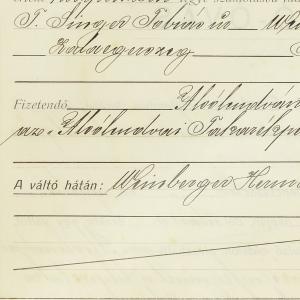 T. Singer Tobias u
Zalaegerszeg
Fizetendő Alsólendván
az Alsólendvai Takarékp
A váltó hátán: Weinberger Herm